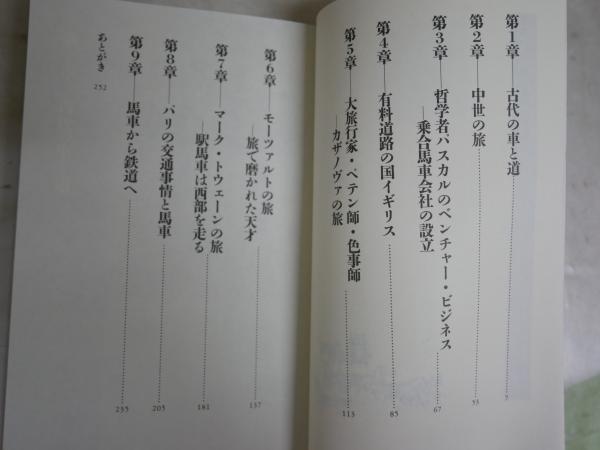 第1章──古代の車と道……7
第2章──中世の旅……53
第3章──哲学者パスカルのベンチャー・ビジネス
─乗合馬車会社の設立……67
第4章──有料道路の国イギリス……85
第5章──大旅行家・ペテン師・色事師
─カザノヴァの旅……113
第6章──モーツァルトの旅
─旅で磨かれた天才……137
第7章──マーク・トウェーンの旅
─駅馬車は西部を走る……181
第8章──パリの交通事情と馬車……205
第9章──馬車から鉄道へ……235
あとがき 252